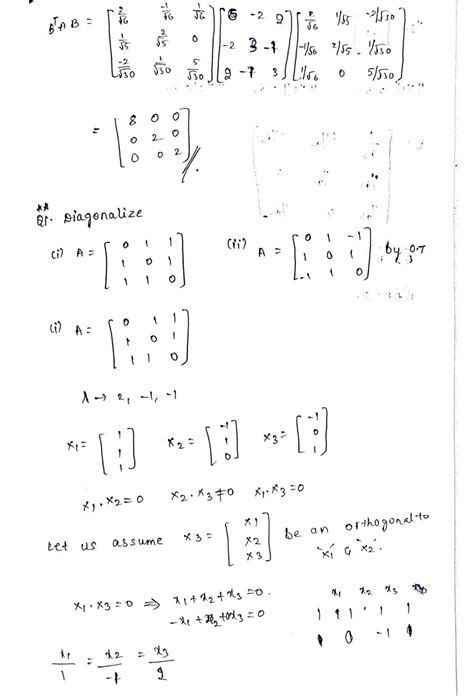 BᵀAB = [2/√6 -1/√6 1/√6; 1/√5 2/√5 0; -2/√30 1/√30 5/√30] [6 -2 2; -2 3 -1; 2 -1 3] [2/√6 1/√5 -2/√30; -1/√6 2/√5 1/√30; 1/√6 0 5/√30]
= [8 0 0; 0 2 0; 0 0 2] //.
**
Q1. Diagonalize
(i) A = [0 1 1; 1 0 1; 1 1 0] (ii) A = [0 1 -1; 1 0 1; -1 1 0] by O.T
(i) A = [0 1 1; 1 0 1; 1 1 0]
λ → 2, -1, -1
x₁ = [1; 1; 1] x₂ = [-1; 1; 0] x₃ = [-1; 0; 1]
x₁·x₂ = 0 x₂·x₃ ≠ 0 x₁·x₃ = 0
Let us assume x₃ = [x₁; x₂; x₃] be an orthogonal to
x₁ & x₂.
x₁·x₃ = 0 ⇒ x₁ + x₂ + x₃ = 0.
-x₁ + x₂ + 0x₃ = 0
x₁ x₂ x₃
1 1 1 1 1
0 -1
x₁/1 = x₂/-1 = x₃/2